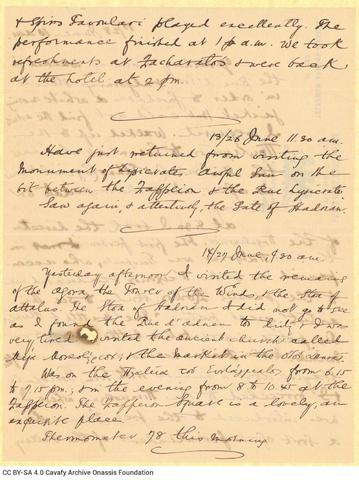 & Spiros Tavoulari played excellently. The
performance finished at 1 p a.m. We took
refreshments at Zacharatos & were back
at the hotel at 2 pm.
13/26 June 11.30 am.
Have just returned from visiting the
Monument of Lysicrates. Awful sun on the
bit between the Zappeion & the Rue Lysicrates
Saw again, & attentively, the Gate of Hadrian.
14/27 June, 9.30 am.
Yesterday afternoon I visited the remains
of the agora, the Tower of the Winds, & the Stoa of
Attalus. The Stoa of Hadrian I did not go to see
as I found the Rue d'
very tired. I visited the ancient church called
& the market in the
Was on the from 6.15
to 7.15 pm; & in the evening from 8 to 10.45 at the
Zappeion. The Zappeion Square is a lovely, an
exquisite place.
Thermometer 78 this morning
CC BY-SA 4.0 Cavafy Archive Onassis Foundation